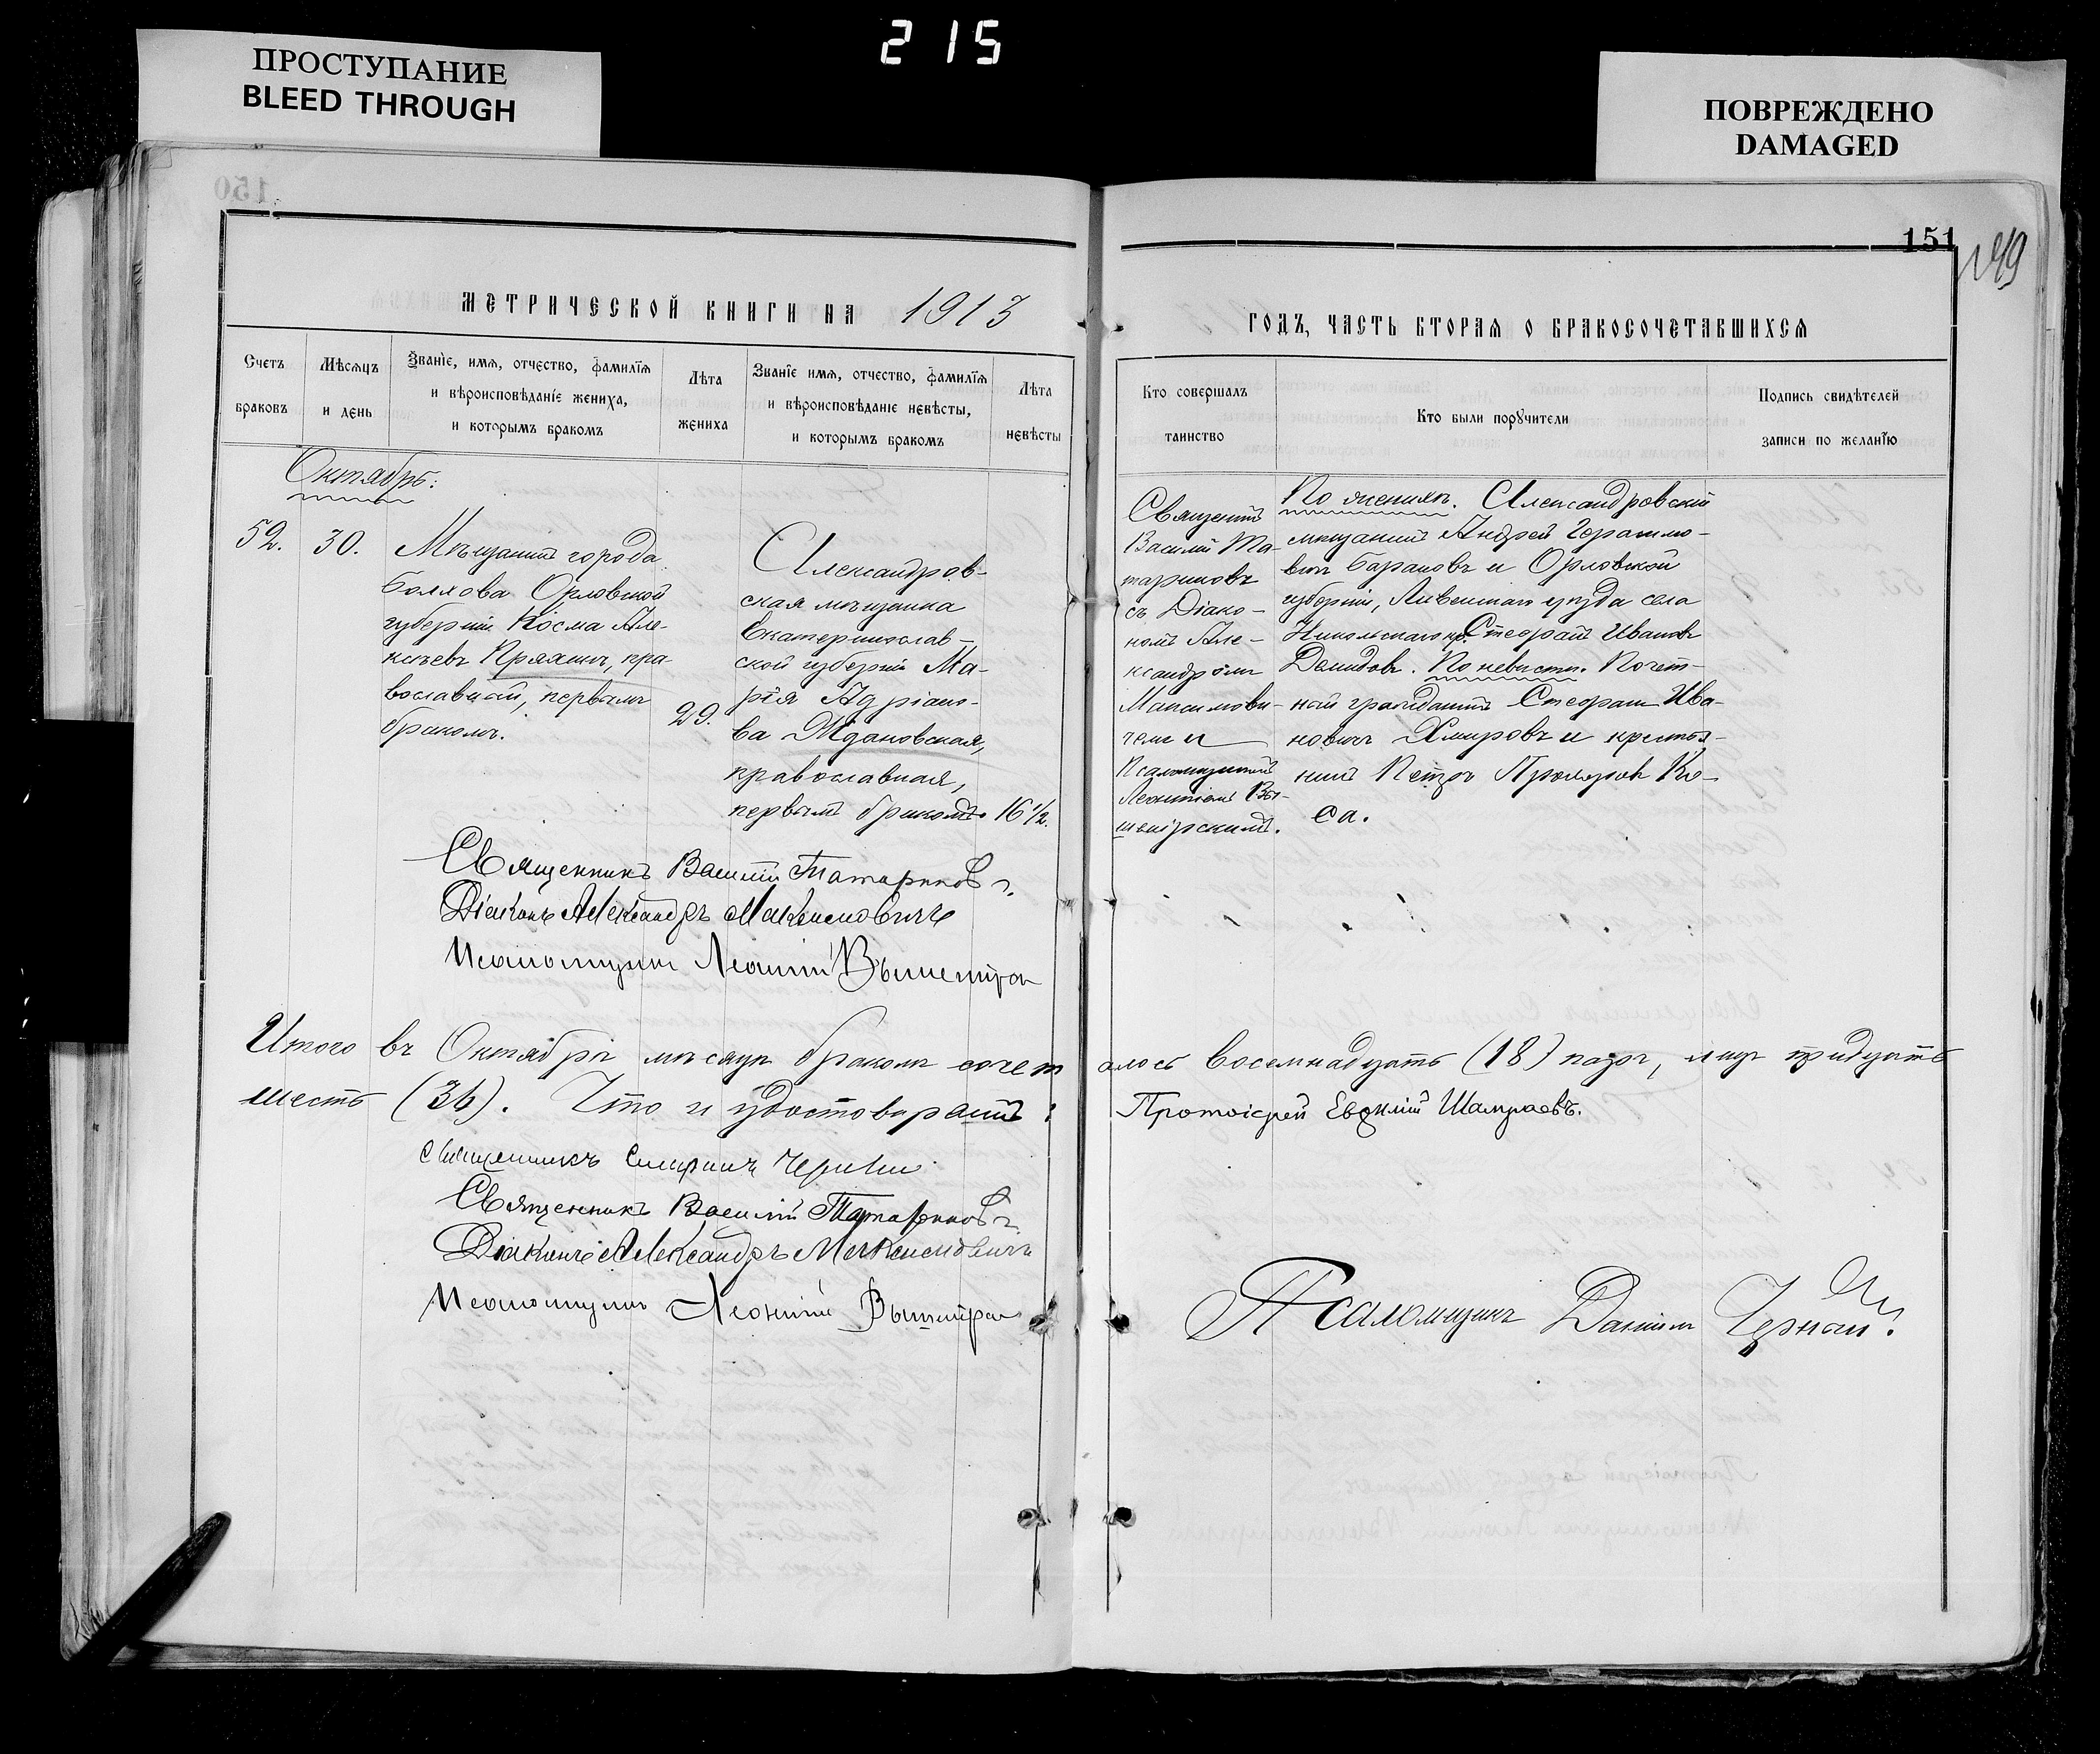 215
ПРОСТУПАНИЕ
BLEED THROUGH
ПОВРЕЖДЕНО
DAMAGED
150
151
149
МЕТРИЧЕСКОЙ КНИГИ НА 1913
ГОДЪ, ЧАСТЬ ВТОРАЯ О БРАКОСОЧЕТАВШИХСЯ
Счетъ браковъ
Мѣсяцъ и день
Званіе, имя, отчество, фамилія и вѣроисповѣданіе жениха, и которымъ бракомъ
Лѣта жениха
Званіе имя, отчество, фамилія и вѣроисповѣданіе невѣсты, и которымъ бракомъ
Лѣта невѣсты
Кто совершалъ таинство
Кто были поручители
Подпись свидѣтелей записи по желанію
Октябрь:
52.
30.
Мѣщанинъ города
Болхова Орловской
губерніи Косма Але-
ксѣевъ Пряхинъ, пра-
вославный, первымъ
бракомъ.
29.
Александров-
ская мѣщанка
Екатеринослав-
ской губерніи Ма-
рія Адріано-
ва Ждановская,
православная,
первымъ бракомъ.
16 1/2.
Священникъ
Василій Та-
тариновъ
съ Діако-
номъ Але-
ксандромъ
Максимови-
чемъ и
Псаломщикомъ
Леонтіемъ Вы-
шемірскимъ.
По женихѣ. Александровскій
мѣщанинъ Андрей Герасимо-
вичъ Барановъ и Орловской
губерніи, Ливенскаго уѣзда села
Никольскаго кр. Стефанъ Ивановъ
Демидовъ. По невѣстѣ. Почет-
ный гражданинъ Стефанъ Ива-
новичъ Хмыровъ и крестья-
нинъ Петръ Прохоровъ Ко-
са.
Священникъ Василій Татариновъ.
Діаконъ Александръ Максимовичъ
Псаломщикъ Леонтій
Итого въ Октябрѣ мѣсяцѣ бракомъ сочеталось восемнадцать (18) паръ, лицъ тридцать
шесть (36). Что и удостовѣряемъ:
Протоіерей Евфимій
Священникъ
Священникъ Василій Татариновъ
Діаконъ Александръ Максимовичъ
Псаломщикъ Леонтій
Псаломщикъ Даніилъ Черный.